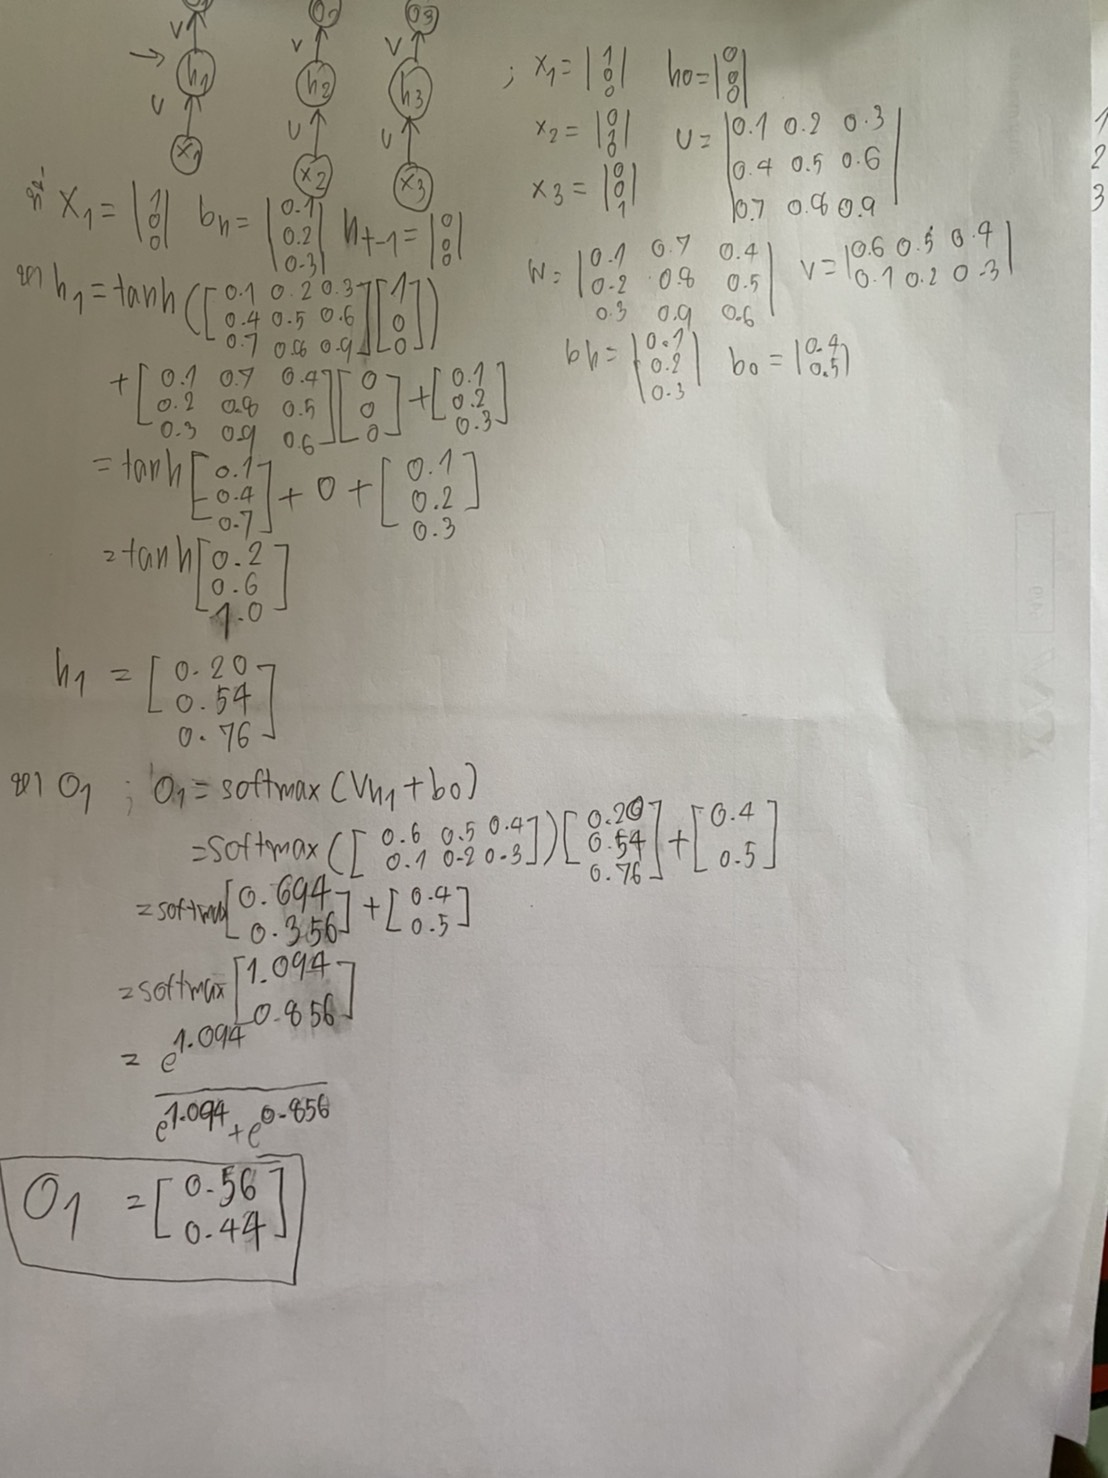 O1 O2 O3
V V V
→ h1 h2 h3
U U U
x1 x2 x3
; x1 = |1 0 0| h0 = |0 0 0|
x2 = |0 1 0| U = |0.1 0.2 0.3
0.4 0.5 0.6
0.7 0.8 0.9|
x3 = |0 0 1|
W = |0.1 0.7 0.4
0.2 0.8 0.5
0.3 0.9 0.6| V = |0.6 0.5 0.4
0.1 0.2 0.3|
bh = |0.1 0.2 0.3| bo = |0.4 0.5|
1
2
3
ที่ x1 = |1 0 0| bh = |0.1 0.2 0.3| ht-1 = |0 0 0|
หา h1 = tanh([0.1 0.2 0.3
0.4 0.5 0.6
0.7 0.8 0.9][1 0 0])
+[0.1 0.7 0.4
0.2 0.8 0.5
0.3 0.9 0.6][0 0 0] + [0.1 0.2 0.3]
= tanh[0.1 0.4 0.7] + 0 + [0.1 0.2 0.3]
= tanh[0.2 0.6 1.0]
h1 = [0.20 0.54 0.76]
หา O1 ; O1 = softmax(Vh1 + bo)
= softmax([0.6 0.5 0.4
0.1 0.2 0.3])[0.20 0.54 0.76] + [0.4 0.5]
= softmax[0.694 0.356] + [0.4 0.5]
= softmax[1.094 0.856]
= e^1.094
e^1.094 + e^0.856
O1 = [0.56 0.44]